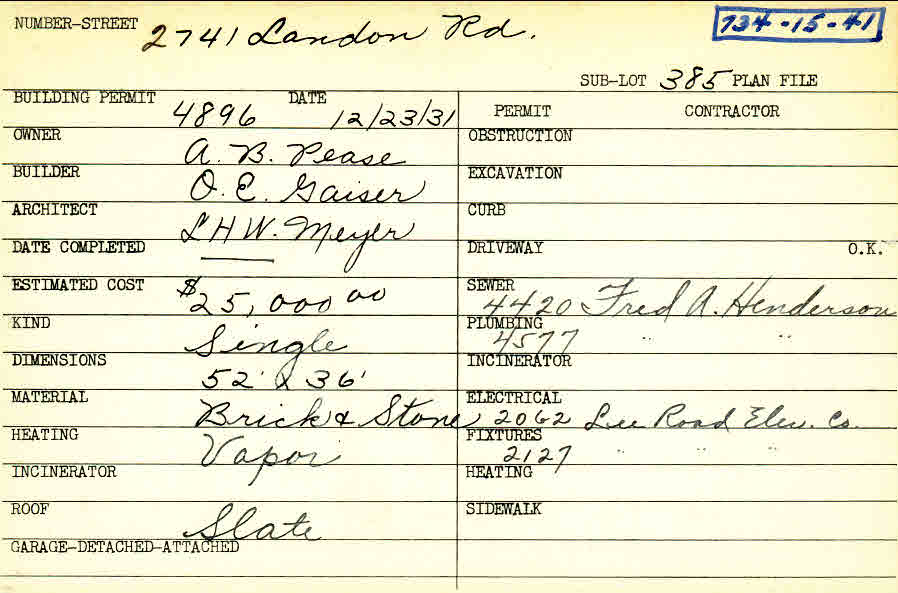 NUMBER-STREET 2741 Landon Rd. 734-15-41
SUB-LOT 385 PLAN FILE
BUILDING PERMIT 4896 DATE 12/23/31
OWNER A. B. Pease
BUILDER O. E. Gaiser
ARCHITECT L H W. Meyer
DATE COMPLETED
ESTIMATED COST $25,000 00
KIND Single
DIMENSIONS 52' x 36'
MATERIAL Brick & Stone
HEATING Vapor
INCINERATOR
ROOF Slate
GARAGE-DETACHED-ATTACHED
PERMIT CONTRACTOR
OBSTRUCTION
EXCAVATION
CURB
DRIVEWAY O.K.
SEWER 4420 Fred A. Henderson
PLUMBING 4577 " "
INCINERATOR
ELECTRICAL 2062 Lee Road Elec. Co.
FIXTURES 2127 " "
HEATING
SIDEWALK